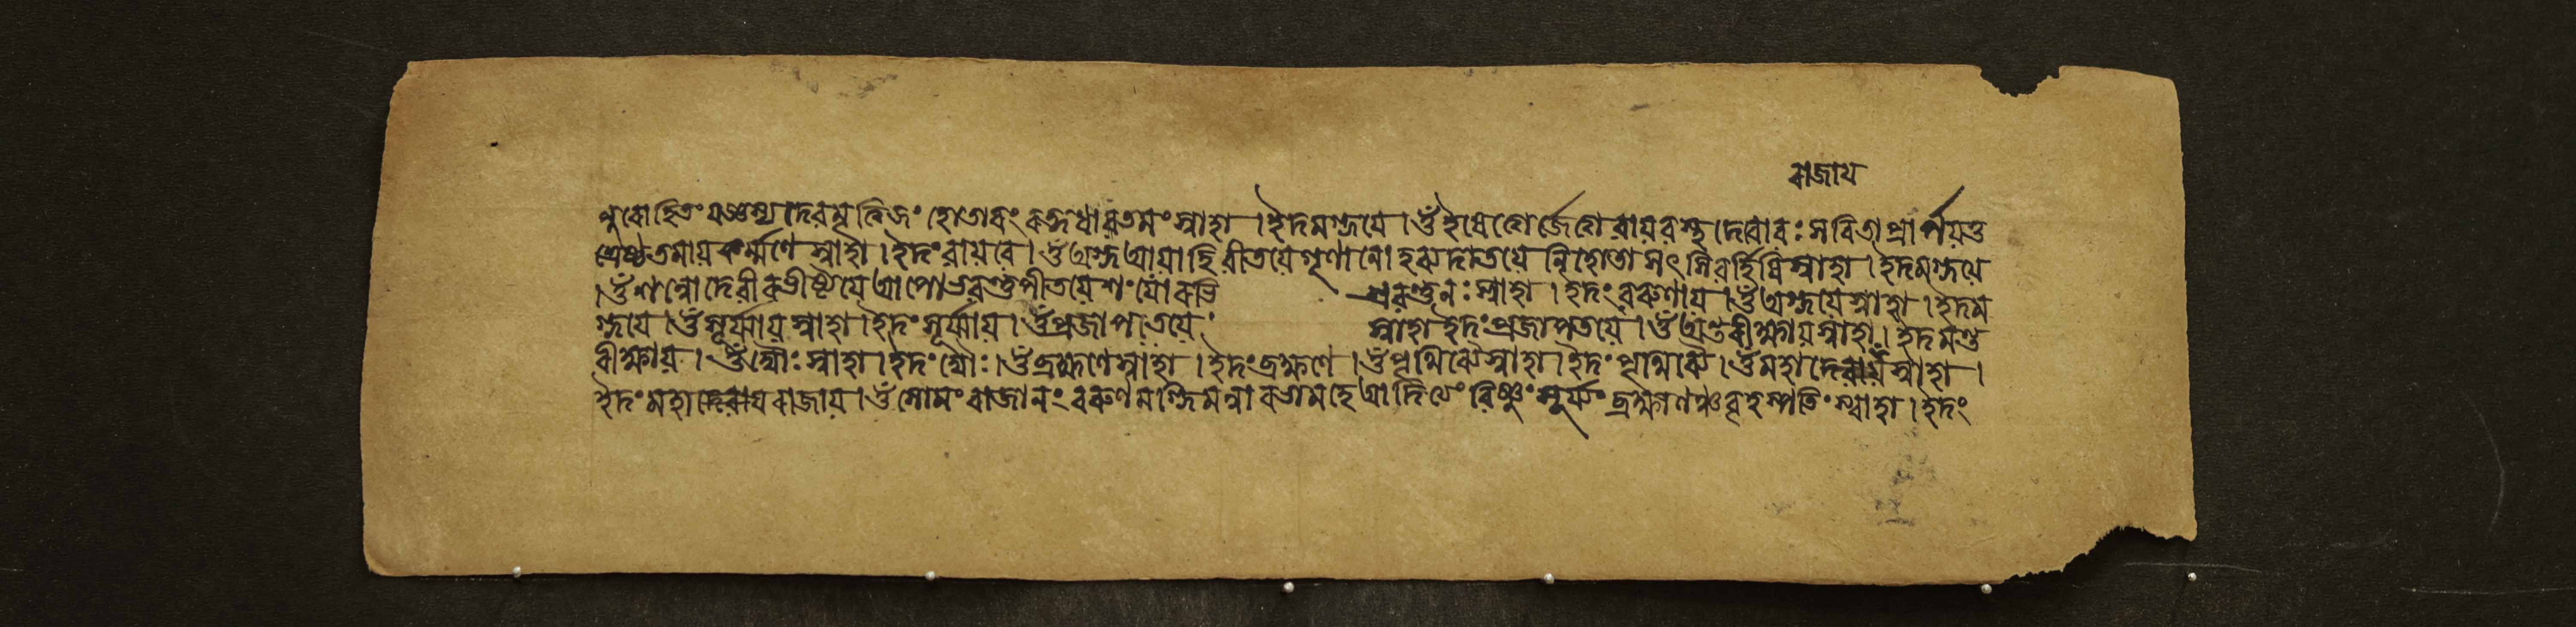 রাজায়
পুরোহিতং যজ্ঞস্য দেবমৃত্বিজং হোতারং রত্নধাতমং স্বাহা । ইদমগ্নয়ে । ওঁ ইষেত্বোর্জেত্বা বায়বস্থ দেবোবঃ সবিতা প্রার্পয়তু
শ্রেষ্ঠতমায় কর্ম্মণে স্বাহা । ইদং বায়বে । ওঁ অগ্ন আয়াহি বীতয়ে গৃণানো হব্যদাতয়ে নিহোতা সৎসি বর্হিষি স্বাহা । ইদমগ্নয়ে
। ওঁ শন্নো দেবীরভীষ্টয়ে আপো ভবন্তু পীতয়ে শংযোরভি স্রবন্তু নঃ স্বাহা । ইদং বরুণায় । ওঁ অগ্নয়ে স্বাহা । ইদম
গ্নয়ে । ওঁ সূর্য্যায় স্বাহা । ইদং সূর্য্যায় । ওঁ প্রজাপতয়ে স্বাহা ইদং প্রজাপতয়ে । ওঁ অন্তরীক্ষায় স্বাহা । ইদমন্ত
রীক্ষায় । ওঁ দ্যৌঃ স্বাহা । ইদং দ্যৌঃ । ওঁ ব্রহ্মণে স্বাহা । ইদং ব্রহ্মণে । ওঁ পৃথিব্যৈ স্বাহা । ইদং পৃথিব্যৈ । ওঁ মহাদেবায় স্বাহা ।
ইদং মহাদেবায় রাজায় । ওঁ সোমং রাজানং বরুণমগ্নিমন্বারভামহে আদিত্যং বিষ্ণুং সূর্য্যং ব্রহ্মাণঞ্চ বৃহস্পতিং স্বাহা । ইদং